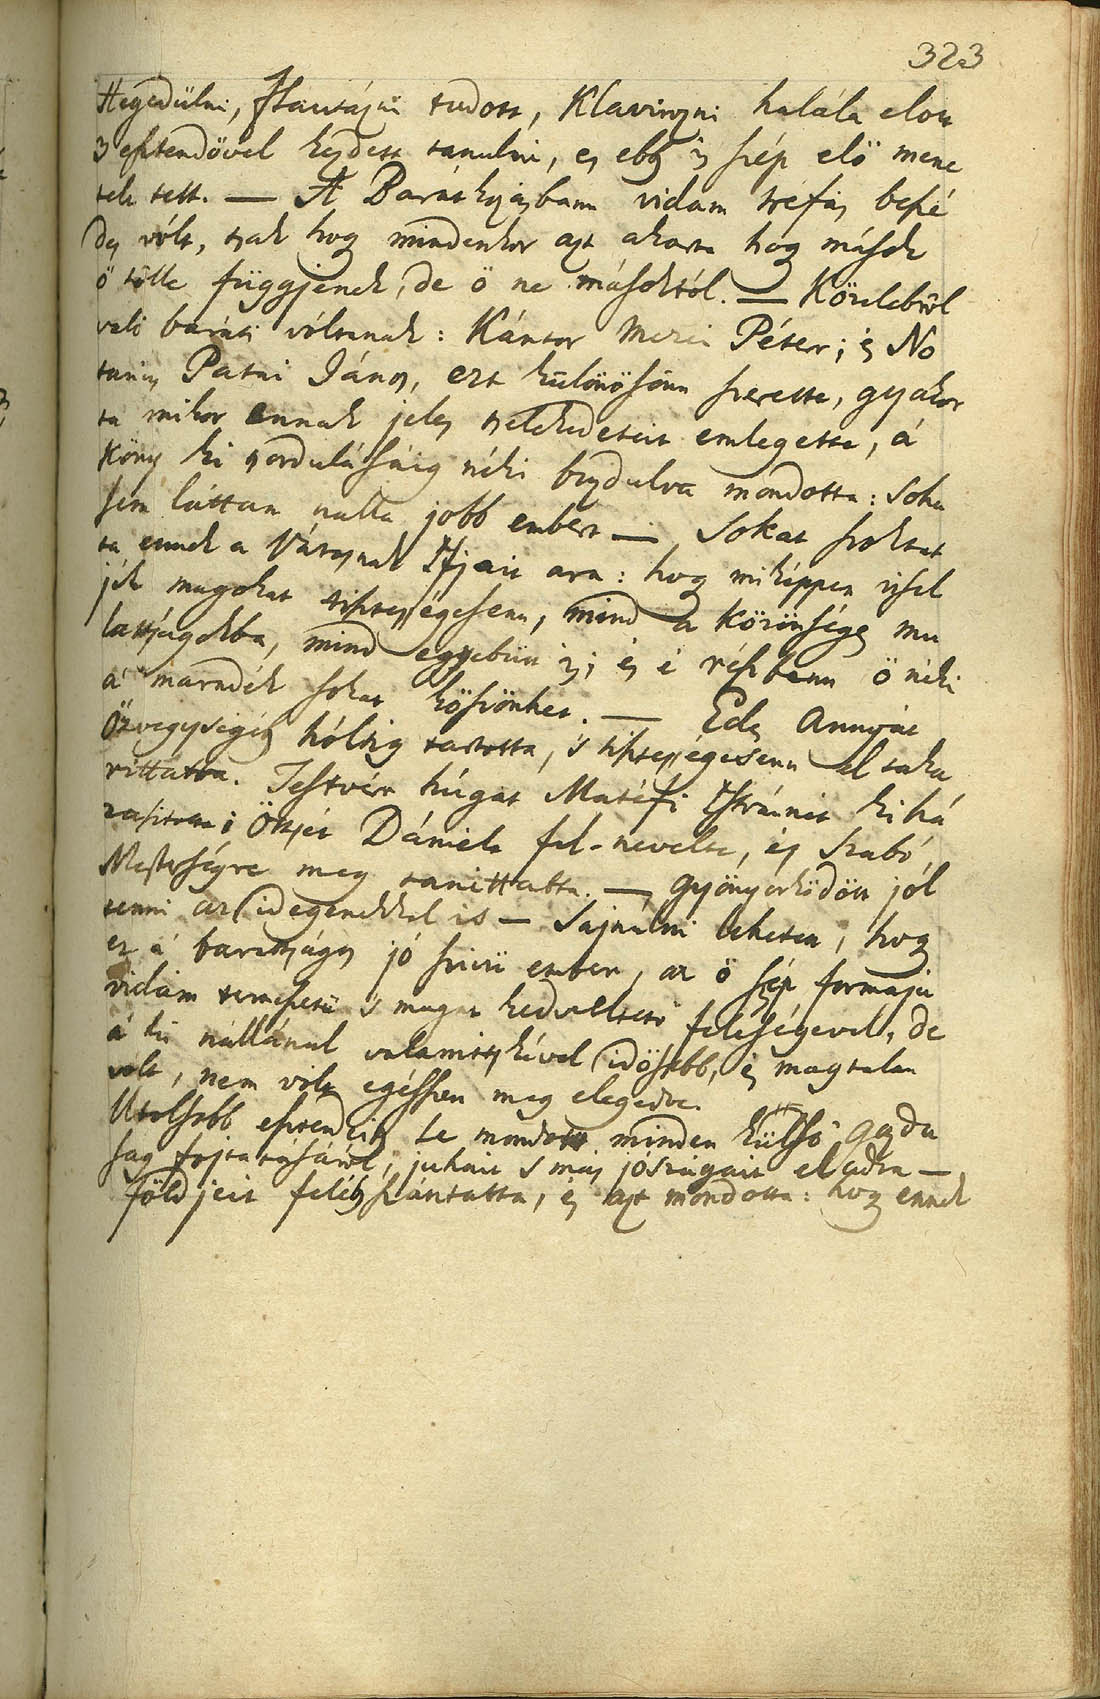 323
Hegedülni, Flautázni tudott, Klavirozni halála elött
3 esztendővel kezdett tanulni, és ebb is szép elő mene
telt tett. — A Barátkozásbann vidám tréfás beszé
dű vólt, tsak hogy mindenkor azt akarta hogy mások
ő tőlle függjenek, de ő ne másoktól. — Közelebről
való baráti vóltanak: Kántor Mezei Péter; és No
tarius Patai János, ezt különösönn szerette, gyakor
ta mikor ennak jeles tselekedeteit emlegette, á
köny ki tsordulásáig néki buzdulva mondotta: Soha
sem láttam nálla jobb embert — Sokat szoktat
ta ennek a Városnak Ifjait arra: hogy miképpen visel
jék magokat tisztességesenn, mind a közönséges mu
lattságokba, mind egyebütt is; és é részbenn ő néki
á maradék sokat köszönhet. — Édes Annyát
Özvegységéb hóltig tartotta, 's tisztességesenn el taka
ríttatta. Testvér húgát Mátéfi Istvánnét kihá
zasitotta; Öttsét Dánielt fel-nevelte, és Szabó
Mesterségre meg taníttatta. — gyönyörködött jól
tenni az idegenekkel is — Sajnálni lehetett, hogy
ez á baráttságos jó szívű ember, az ő szép formájú
vidám természetű 's magát kedveltető feleségével, de
á ki nállánál valamitskével idősebb, és magtalan
volt, nem vólt egészszen meg elégedve.
Utolsóbb esztendeiben le mondott minden külső gazda
ság folytatásáról, juhait s más jószágait el adta —
földjeit feléb szántatta, és azt mondotta: hogy ennek